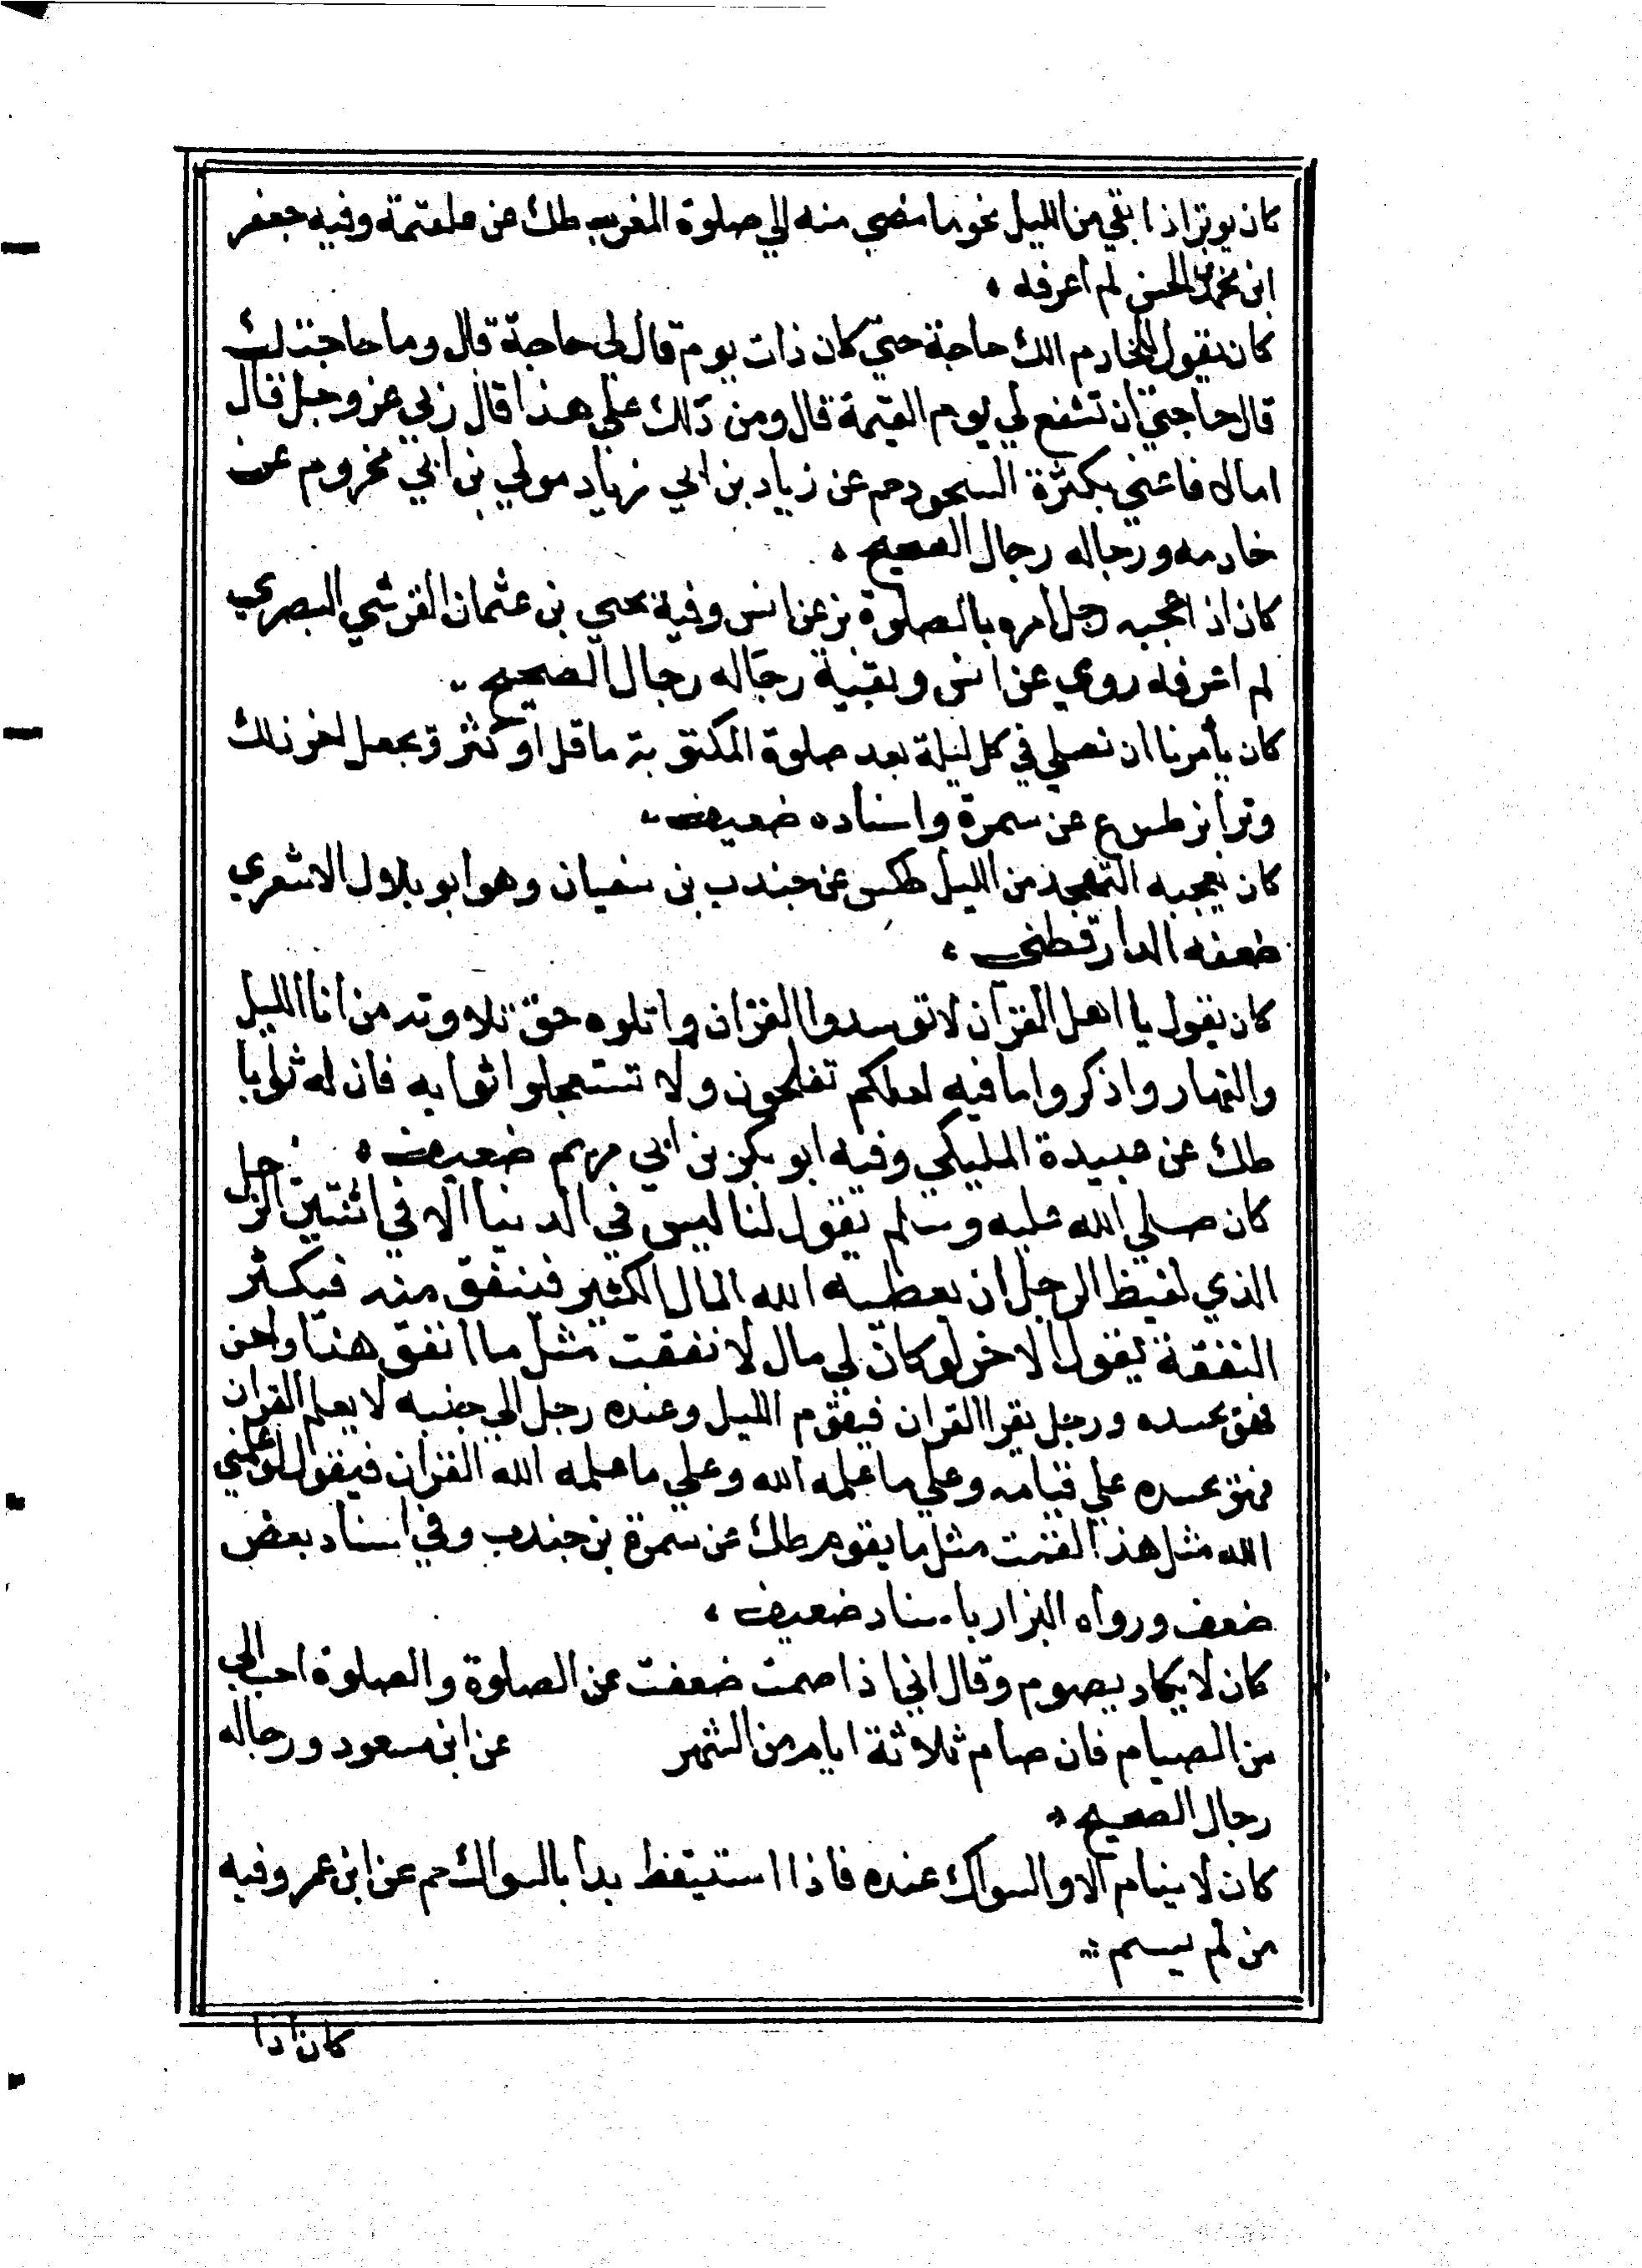 كان يوتر اذا بقي من الليل نحو ما مضي منه الي صلوة المغرب طك عن علقمة وفيه جعفر
ابن محمد بن الحسن لم اعرفه
كان يقول للخادم الك حاجة حتي كان ذات يوم قال لي حاجة قال وما حاجتك
قال حاجتي ان تشفع لي يوم القيمة قال ومن ذلك علي هذا قال ربي عز وجل قال
اما لا فاعني بكثرة السجود حم عن زياد بن ابي زياد مولي بن ابي مخزوم عن
خادمه ورجاله رجال الصحيح
كان اذا اعجبه رجل امره بالصلوة بز عن انس وفية يحيي بن عثمان القرشي البصري
لم اعرفه روي عن انس وبقية رجاله رجال الصحيح
كان يأمرنا ان نصلي في كل ليلة بعد صلوة المكتوبة ما قل او كثر ونجعل اخر ذلك
وترا بز طس ع عن سمرة واسناده ضعيف
كان يعجبه التهجد من الليل طكس عن جندب بن سفيان وهو ابو بلال الاشعري
ضعفه الدارقطني
كان يقول يا اهل القرآن لا توسدوا القرآن واتلوه حق تلاوته من انا الليل
والنهار واذكروا ما فيه لعلكم تفلحون ولا تستعجلوا ثوابه فان له ثوابا
طك عن عبيدة المليكي وفيه ابو بكر بن ابي مريم ضعيف
كان صلي الله عليه وسلم يقول لنا ليس في الدنيا الا في اثنتين الرجل
الذي لغيظ الرجل ان يعطيه الله المال الكثير فينفق منه فيكثر
النفقة يقول الاخر لو كان لي مال لانفقت مثل ما انفق هذا واحسن
فهو يحسده ورجل يقرا القران فيقوم الليل وعنده رجل الي جنبه لا يعلم القران
فهو يحسده علي قيامه وعلي ما علمه الله وعلي ما علمه الله القران فيقول لو علمني
الله مثل هذا لقمت مثل ما يقوم طك عن سمرة بن جندب وفي اسناد بعض
ضعف ورواه البزار باسناد ضعيف
كان لا يكاد يصوم وقال اني اذا صمت ضعفت عن الصلوة والصلوة احب الي
من الصيام فان صام ثلاثة ايام من الشهر عن ابن مسعود ورجاله
رجال الصحيح
كان لا ينام الا والسواك عنده فاذا استيقظ بدا بالسواك حم عن ابن عمر وفيه
من لم يسم
كان اذا